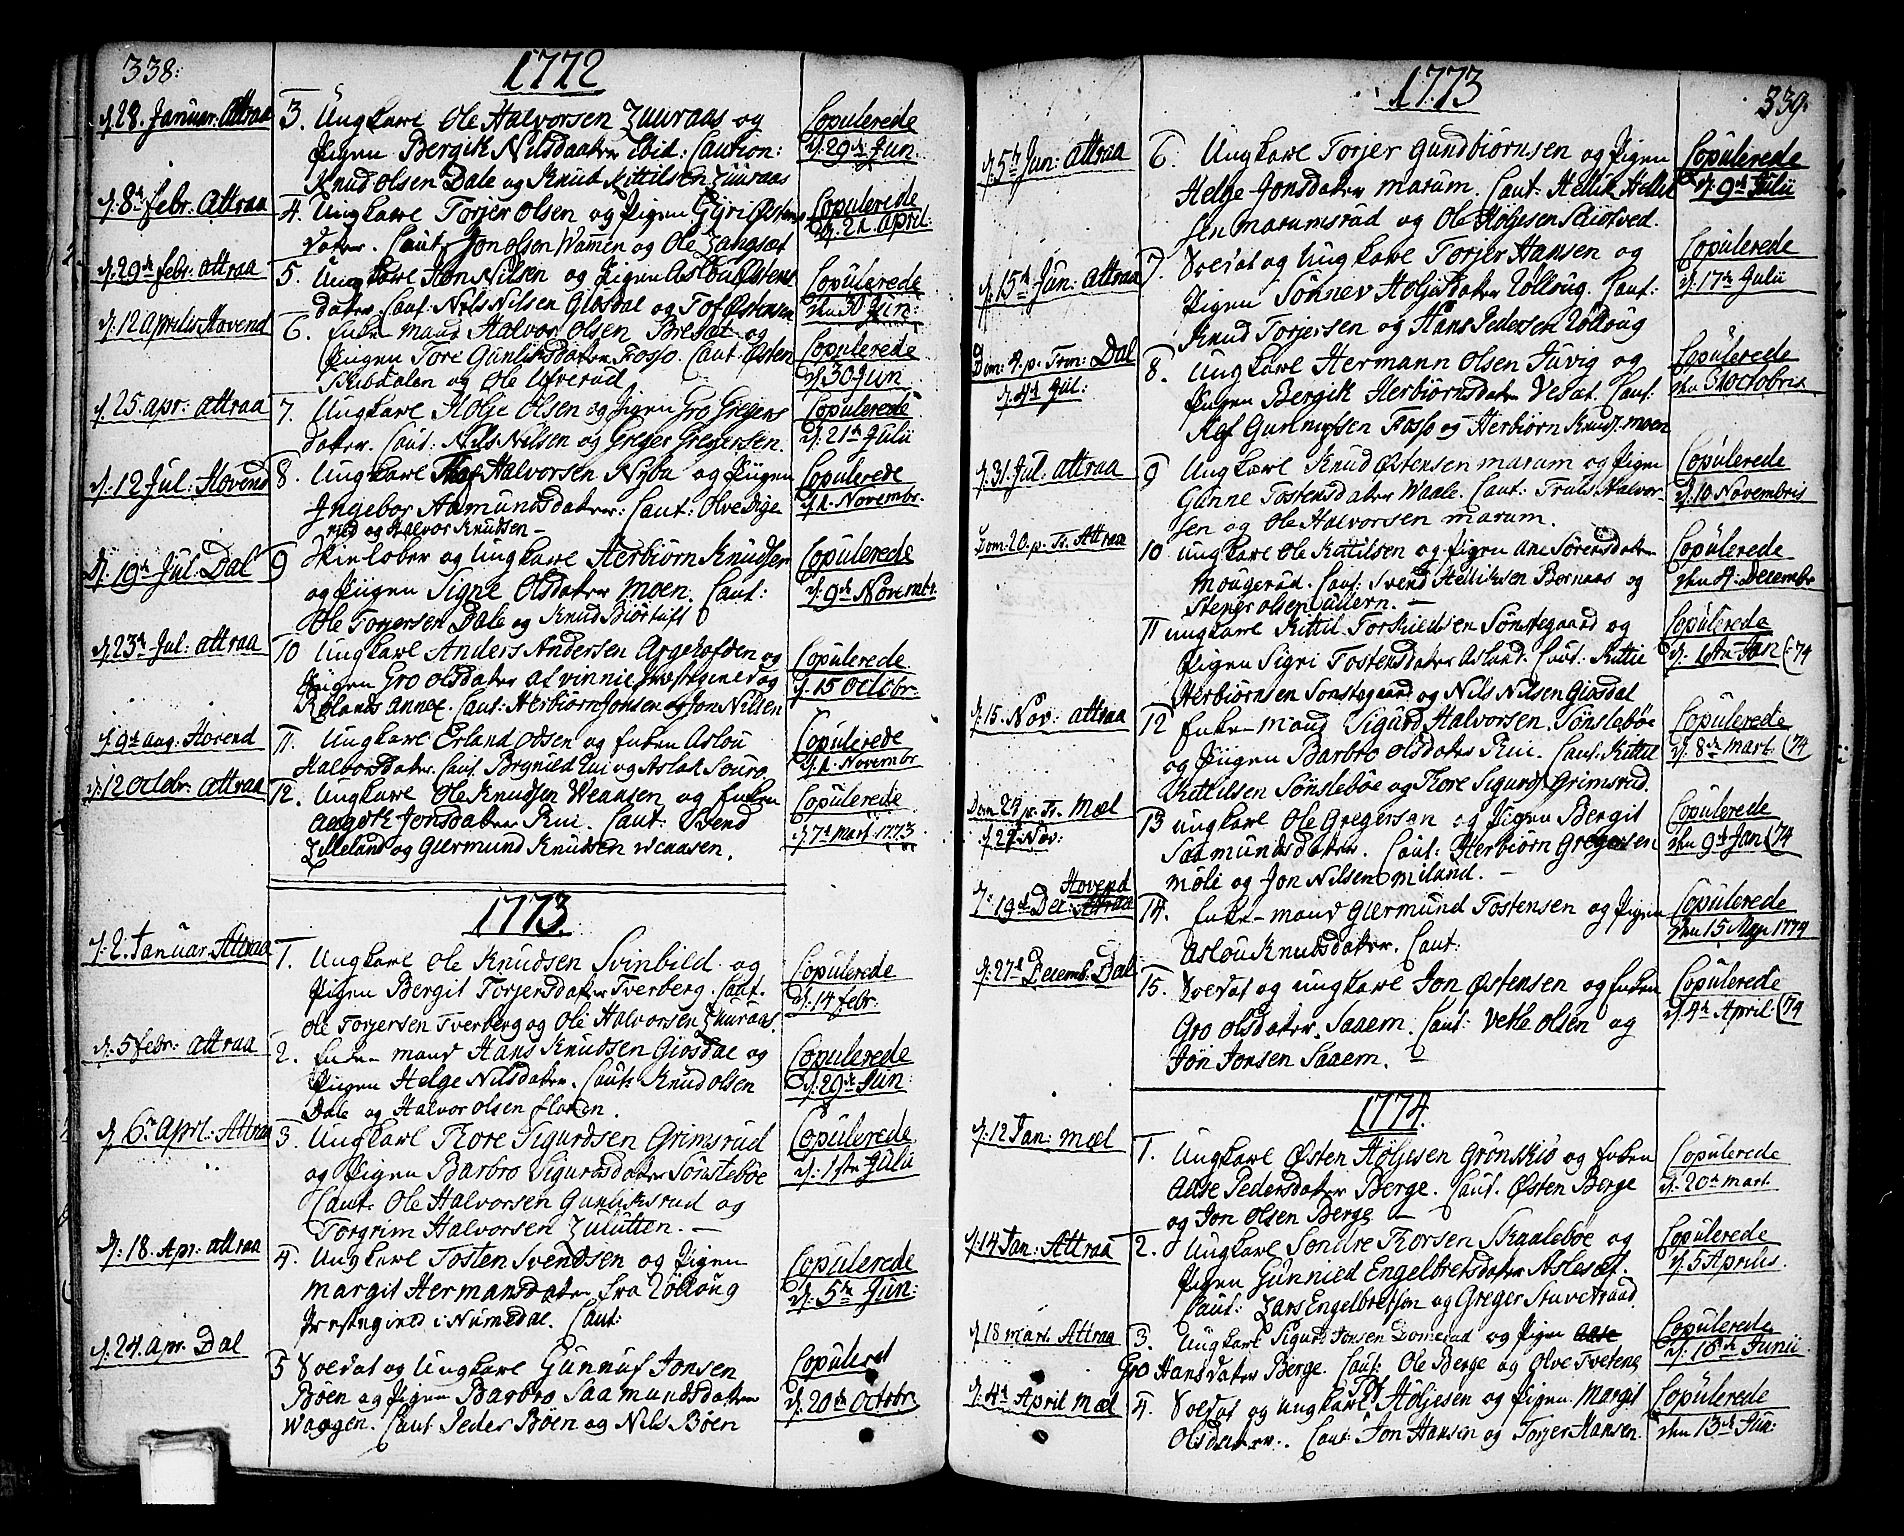 338:
1772
d. 28. Januar. Attraa
3. Ungkarl Ole Halvorsen Luuraas og
Pigen Bergit Nilsdaater ibid: Caution:
Knud Olsen Dale og Knud Kittilsen Luuraas
Copulerede
d. 29de Jun.
d. 8de febr: Attraa
4. Ungkarl Torjer Olsen og Pigen Gyri Østens
dater. Caut: Jon Olsen Wamen og Ole
Copulerede
d. 21 April:
d. 29de febr: attraa
5. Ungkarl Jon Nilsen og Pigen Aslou Østens
dater. Caut: Nils Nilsen Giosdal og Tof Østensen
Copulerede
den 30 Jun:
d. 12 Aprilis Hovend
6. Enke-mand Halvor Olsen Bresat og
Pigen Tore Gunliksdater Fosso. Caut: Østen
Skibdalen og Ole Ufverud
Copulerede
d. 30 Jun
d. 25. apr: attraa
7. Ungkarl Holje Olsen og Pigen Gro Gregers
dater. Caut: Nils Nilsen og Greger Gregersen.
Copulerede
d: 21de Julii
d. 12 Jul: Hovend
8. Ungkarl Halvorsen Nybu og Pigen
Ingebor Aamundsdater: Caut: Olve Dige
rud og Halvor Knudsen
Copulerede
d. 1. Novembr.
d. 19de Jul: Dal
9 Skieløber og Ungkarl Herbiørn Knudsen
og Pigen Signe Olsdater Moen. Caut:
Ole Torjersen Dale og Knud Biørtuft
Copulerede
d. 9de Novembr.
d. 23de Jul: attraa
10 Ungkarl Anders Andersen Argehofden og
Pigen Gro Olsdater af Vinnie Præstegield og
Rolands Annex. Caut: Herbiørn Jonsen og Jon Nilsen
Copulerede
d. 15 Octobr.
d. 9de aug: Hovend
11. Ungkarl Erland Olsen og Enken Aslou
Halvorsdater. Caut: Brynild Lui og Aslak Souro
Copulerede
d. 1. Novembr
d. 12 Octobr. attraa
12. Ungkarl Ole Knudsen Weaasen og Enken
Jonsdater Rui. Caut: Svend
Lilleland og Giermund Knudsen Weaasen.
Copulerede
d. 7de Mart: 1773
1773
d. 2. Januar. Attraa
1. Ungkarl Ole Knudsen Svinbild og
Pigen Bergit Torjersdater Tverberg. Caut.
Ole Torjersen Tverberg og Ole Halvorsen Luuraas.
Copulerede
d. 14 febr.
d. 5 febr: attraa
2. Enke-mand Hans Knudsen Giosdal og
Pigen Helge Nilsdater. Caut: Knud Olsen
Dale og Halvor Olsen floden.
Copulerede
d. 29de Jun:
d. 6te Aprl: Attraa
3. Ungkarl Tore Sigurdsen Grimsrud
og Pigen Barbro Sigurdsdater Sønstebøe
Caut: Ole Halvorsen Gunliksrud og
Torgrim Halvorsen
Copulerede
d. 1ste Julii
d: 18. Apr: attraa
4. Ungkarl Tosten Svendsen og Pigen
Margit Hermansdater fra Tolloug
Præstegield i Numedal. Caut:
Copulerede
d. 5te Jun:
d. 24. apr. Dal
5 Soldat og Ungkarl Gunnuf Jonsen
Bøen og Pigen Barbro Saamundsdater
Waagen. Caut Peder Bøen og Nils Bøen
Copulered
d. 20de Octobr.
339.
1773
d. 5te Jun: Attraa
6. Ungkarl Torjer Gundbiørnsen og Pigen
Helge Jonsdater Marum. Caut: Hellik Hellik
sen Marumsrud og Ole Høljesen Skiotved.
Copulerede
d. 9de Julii
d. 15de Jun: Attraa
7. Soldat og Ungkarl Torjer Hansen og
Pigen Sønnev Holjesdater Tolloug. Caut:
Knud Torjersen og Hans Pedersen Tolloug
Copulerede
d. 17de Julii
Dom: 4. p. Trin: Dal
d. 4de Jul:
8. Ungkarl Hermann Olsen Juvig og
Pigen Bergit Herbiørnsdater Vesat. Caut:
Gunnufsen Fosso og Herbiørn Knuds. Moen
Copulerede
den 31 Octobris
d. 31. Jul. attraa
9 Ungkarl Knud Østensen Marum og Pigen
Ganne Tostensdater Waale. Caut: Truls Halvor-
sen og Ole Halvorsen Marum.
Copulerede
d. 10 Novembris
Dom. 20. p. Tr. Attraa
10 Ungkarl Ole Kittilsen og Pigen Ane Sørensdater
Mougerud. Caut: Svend Helliksen Bernaas og
Stener Olsen
Copulerede
den 4. Decembr
11 Ungkarl Kittil Torkildsen Sønstegaard og
Pigen Sigri Tostensdater Asland. Caut: Kittil
Herbiørnsen Sonstegaard og Nils Nilsen Giosdal
Copulerede
d. 1ste Jan (74
d. 15. Nov: attraa
12 Enke-mand Sigurd Halvorsen Sønstebøe
og Pigen Barbro Olsdater Rui. Caut: Kittil
Kittilsen Sønstebøe og Tore Sigurds. Grimsrud.
Copulerede
d. 8de Mart. (74
Dom 24 p. Tr. Mæl
d. 21 Nov:
13 Ungkarl Ole Gregersen og Pigen Bergit
Saamundsdater. Caut: Herbiørn Gregersen
Møli og Jon Nilsen Miland.
Copulerede
den 9de Jan (74
Hovend
d. 19de Dec: Attraa
14. Enke-mand Giermund Tostensen og Pigen
Aslou Knudsdater. Caut:
Copulerede
den 15 May 1774
d. 27de Decemb. Dal
15. Soldat og Ungkarl Jon Østensen og Enken
Gro Olsdater Saaem. Caut: Vetle Olsen og
Jøn Jonsen Saaem.
Copulerede
d. 4de April: (74
1774.
d. 12 Jan: Mæl
1. Ungkarl Østen Høljesen Grønskio og Enken
Aase Pedersdater Berge. Caut. Østen Berge
og Jon Olsen Berge
Copulerede
d. 20de Mart.
d. 14 Jan: Attraa
2. Ungkarl Søndre Torsen Skaalebøe og
Pigen Gunnild Engelbretsdater Aslesæt.
Caut: Lars Engelbretsen og Greger Stuvetraad.
Copulerede
d. 5 Aprilis.
d. 18 Mart. Attraa
3. Ungkarl Sigurd Jonsen Domerud og Pigen Aase
Gro Hansdater Berge. Caut: Ole Berge og Olve Tvetene
Copulerede
d. 18de Junii
d. 4de April Mæl
4. Soldat og Ungkarl Tof Høljesen og Pigen Margit
Olsdater. Caut: Jon Hansen og Torjer Hansen.
Copulerede
den 13de Jun: